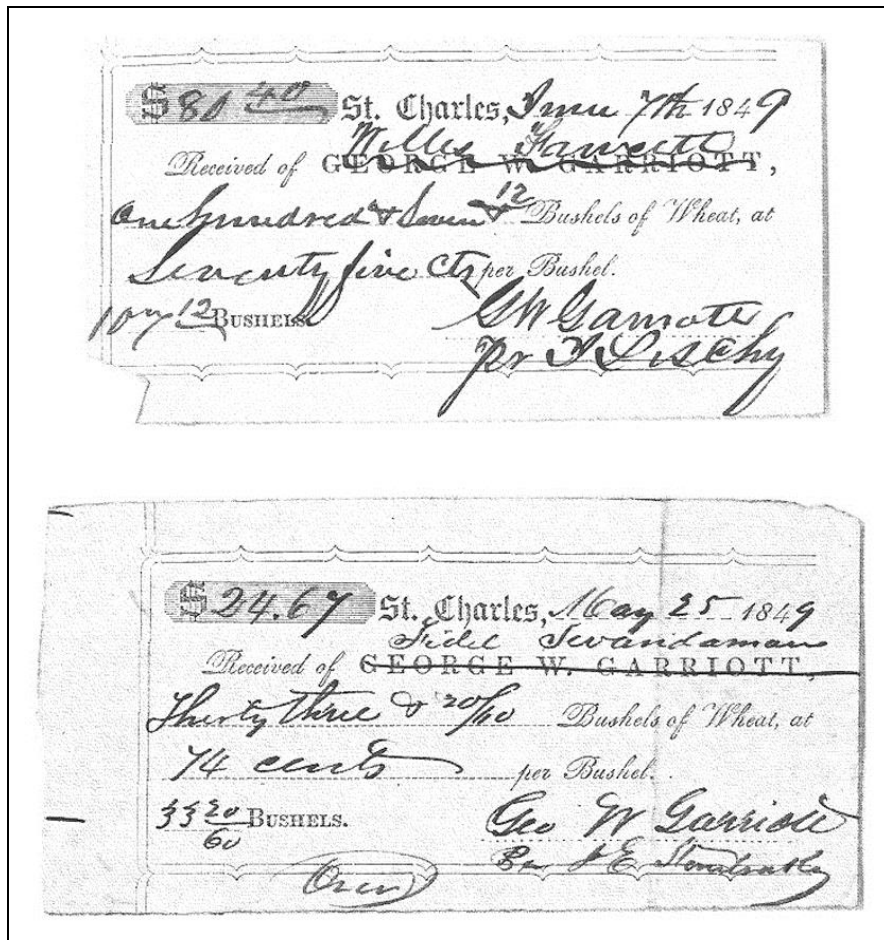 $80 40 St. Charles, June 7th 1849
Willis Fawcett
Received of GEORGE W. GARRIOTT,
One hundred & Seven & 12 Bushels of Wheat, at
Seventy five Cts per Bushel.
107 12 BUSHELS.
G W Garriote
pr
$24.67 St. Charles, May 25 1849
Fidel Swandaman
Received of GEORGE W. GARRIOTT,
Thirty three & 20/60 Bushels of Wheat, at
74 cents per Bushel.
33 20/60 BUSHELS.
Geo W Garriott
Per J E